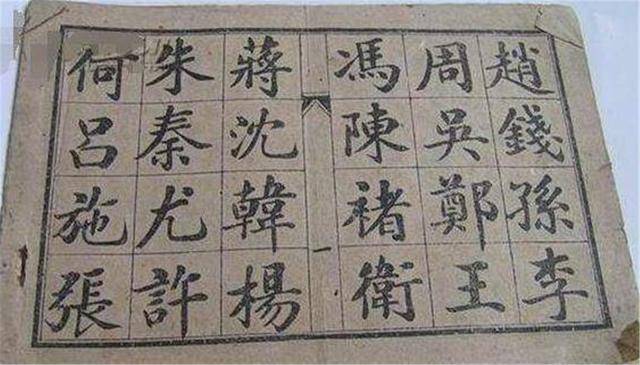 趙錢孫李
周吳鄭王
馮陳褚衛
一
蔣沈韓楊
朱秦尤許
何呂施張